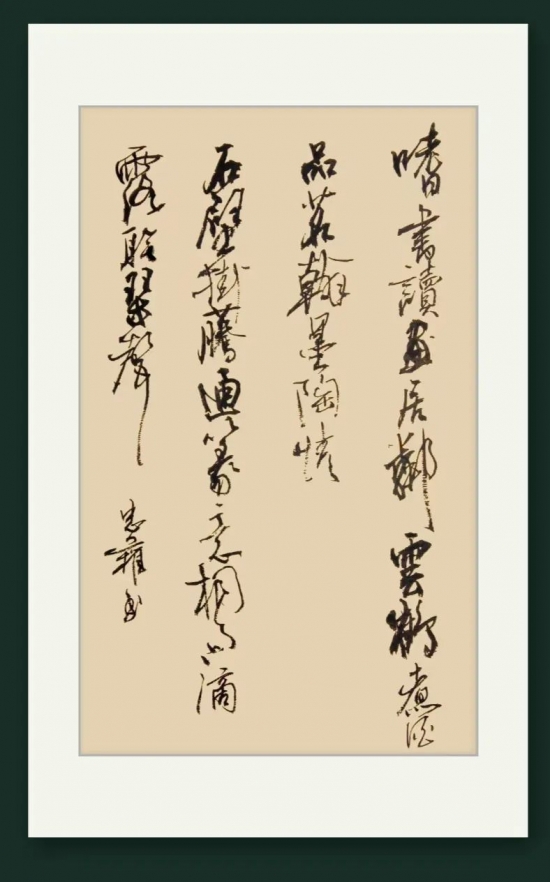 嗜書讀畫居鄰雲鶴煮酒
品茗翰墨陶情
石壁掛藤通篆意桐滴
露聆琴聲
忠書